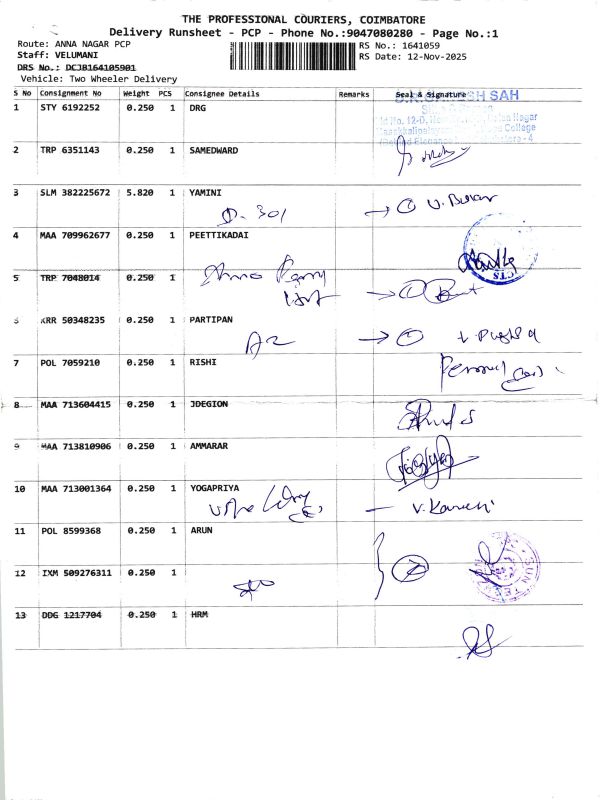 THE PROFESSIONAL COURIERS, COIMBATORE
Delivery Runsheet - PCP - Phone No.:9047080280 - Page No.:1
Route: ANNA NAGAR PCP
RS No.: 1641059
Staff: VELUMANI
RS Date: 12-Nov-2025
DRS No.: DCJB164105901
Vehicle: Two Wheeler Delivery
S No Consignment No Weight PCS Consignee Details Remarks Seal & Signature
1 STY 6192252 0.250 1 DRG
2 TRP 6351143 0.250 1 SAMEDWARD
3 SLM 382225672 5.820 1 YAMINI
D-301
4 MAA 709962677 0.250 1 PEETTIKADAI
CTS
5 TRP 7048014 0.250 1
KRR 50348235 0.250 1 PARTIPAN
A2
7 POL 7059210 0.250 1 RISHI
8 MAA 713604415 0.250 1 JDEGION
9 MAA 713810906 0.250 1 AMMARAR
10 MAA 713001364 0.250 1 YOGAPRIYA
11 POL 8599368 0.250 1 ARUN
2
12 IXM 509276311 0.250 1
13 DDG 1217704 0.250 1 HRM